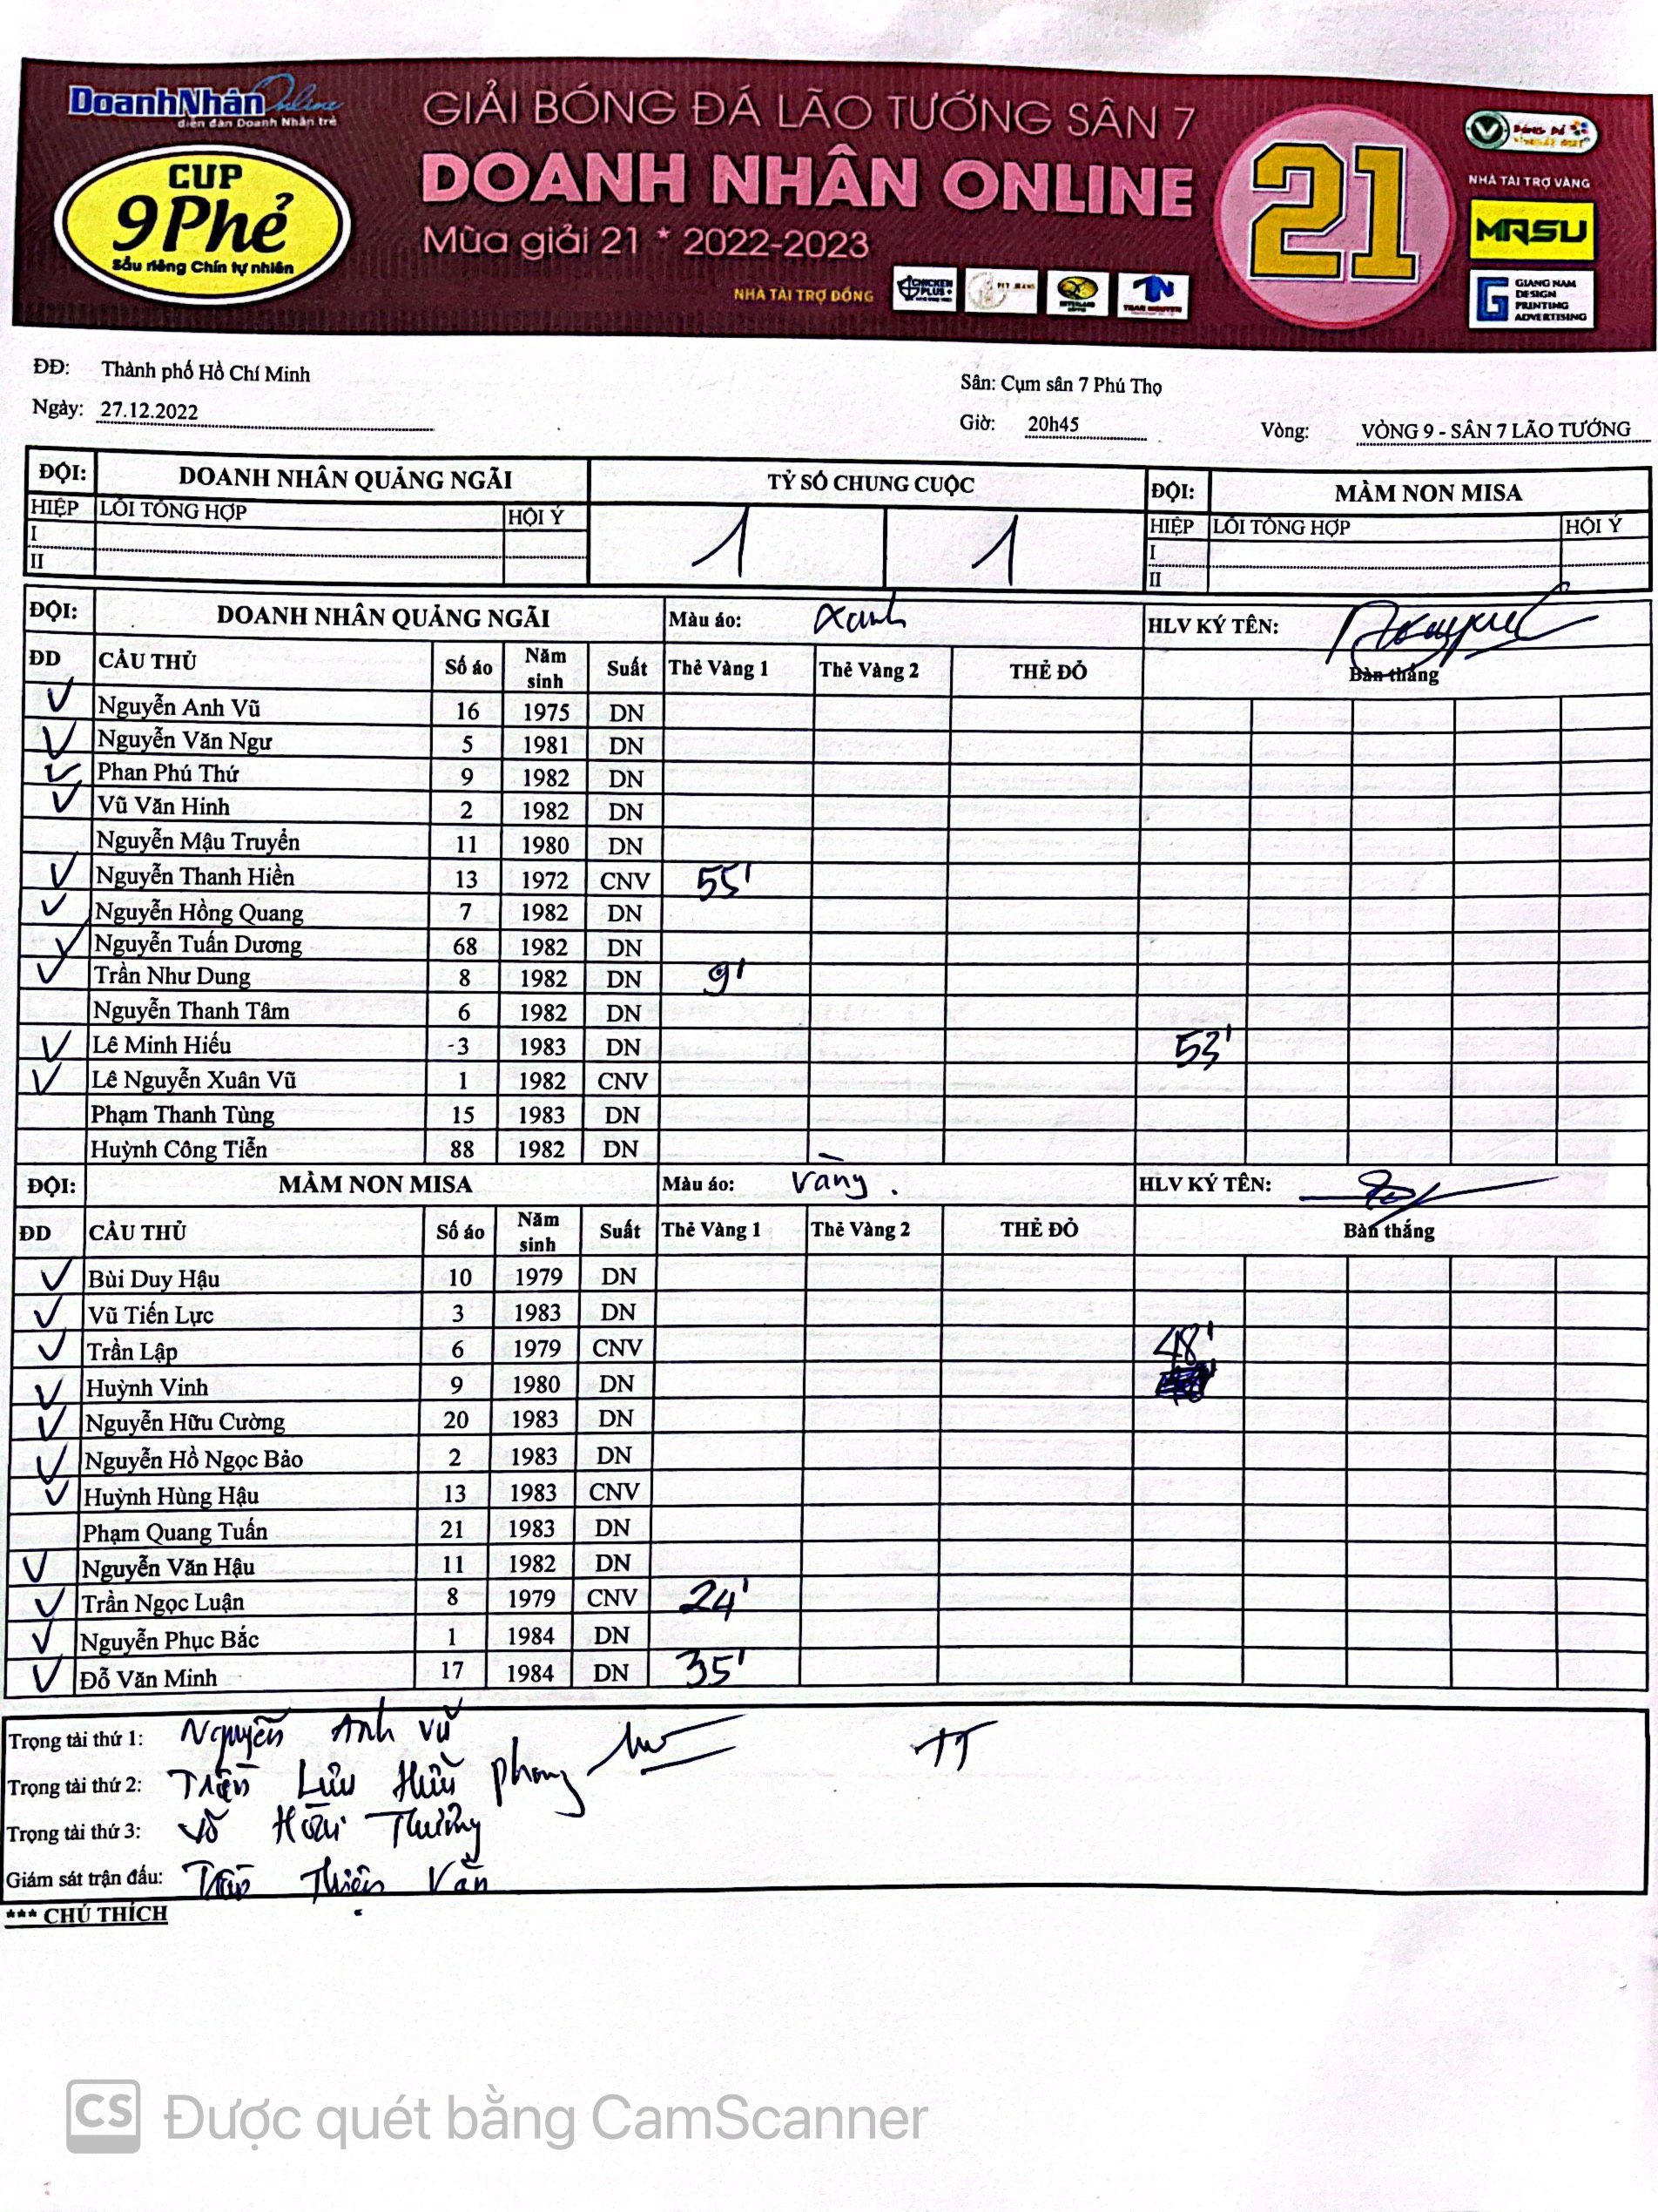 DoanhNhân Online
diễn đàn Doanh Nhân trẻ
CUP
9Phẻ
Sầu riêng Chín tự nhiên
GIẢI BÓNG ĐÁ LÃO TƯỚNG SÂN 7
DOANH NHÂN ONLINE
Mùa giải 21 * 2022-2023
NHÀ TÀI TRỢ ĐỒNG
CHICKEN PLUS+
21
NHÀ TÀI TRỢ VÀNG
MRSU
GIANG NAM
DESIGN
PRINTING
ADVERTISING
ĐĐ: Thành phố Hồ Chí Minh
Sân: Cụm sân 7 Phú Thọ
Ngày: 27.12.2022
Giờ: 20h45
Vòng: VÒNG 9 - SÂN 7 LÃO TƯỚNG
ĐỘI: DOANH NHÂN QUẢNG NGÃI TỶ SỐ CHUNG CUỘC ĐỘI: MẦM NON MISA
HIỆP LỖI TỔNG HỢP HỘI Ý 1 1 HIỆP LỖI TỔNG HỢP HỘI Ý
I I
II II
ĐỘI: DOANH NHÂN QUẢNG NGÃI Màu áo: xanh HLV KÝ TÊN:
ĐD CẦU THỦ Số áo Năm sinh Suất Thẻ Vàng 1 Thẻ Vàng 2 THẺ ĐỎ Bàn thắng
Nguyễn Anh Vũ 16 1975 DN
Nguyễn Văn Ngư 5 1981 DN
Phan Phú Thứ 9 1982 DN
Vũ Văn Hinh 2 1982 DN
Nguyễn Mậu Truyển 11 1980 DN
Nguyễn Thanh Hiền 13 1972 CNV 55'
Nguyễn Hồng Quang 7 1982 DN
Nguyễn Tuấn Dương 68 1982 DN
Trần Như Dung 8 1982 DN 9'
Nguyễn Thanh Tâm 6 1982 DN
Lê Minh Hiếu -3 1983 DN 53'
Lê Nguyễn Xuân Vũ 1 1982 CNV
Phạm Thanh Tùng 15 1983 DN
Huỳnh Công Tiễn 88 1982 DN
ĐỘI: MẦM NON MISA Màu áo: vàng. HLV KÝ TÊN:
ĐD CẦU THỦ Số áo Năm sinh Suất Thẻ Vàng 1 Thẻ Vàng 2 THẺ ĐỎ Bàn thắng
Bùi Duy Hậu 10 1979 DN
Vũ Tiến Lực 3 1983 DN
Trần Lập 6 1979 CNV 48'
Huỳnh Vinh 9 1980 DN
Nguyễn Hữu Cường 20 1983 DN
Nguyễn Hồ Ngọc Bảo 2 1983 DN
Huỳnh Hùng Hậu 13 1983 CNV
Phạm Quang Tuấn 21 1983 DN
Nguyễn Văn Hậu 11 1982 DN
Trần Ngọc Luận 8 1979 CNV 24'
Nguyễn Phục Bắc 1 1984 DN
Đỗ Văn Minh 17 1984 DN 35'
Trọng tài thứ 1: Nguyễn Anh Vũ TT
Trọng tài thứ 2: Trần Lưu Hữu Phong
Trọng tài thứ 3: Võ Hoài Thưởng
Giám sát trận đấu: Trần Thiện Văn
*** CHÚ THÍCH
CS Được quét bằng CamScanner